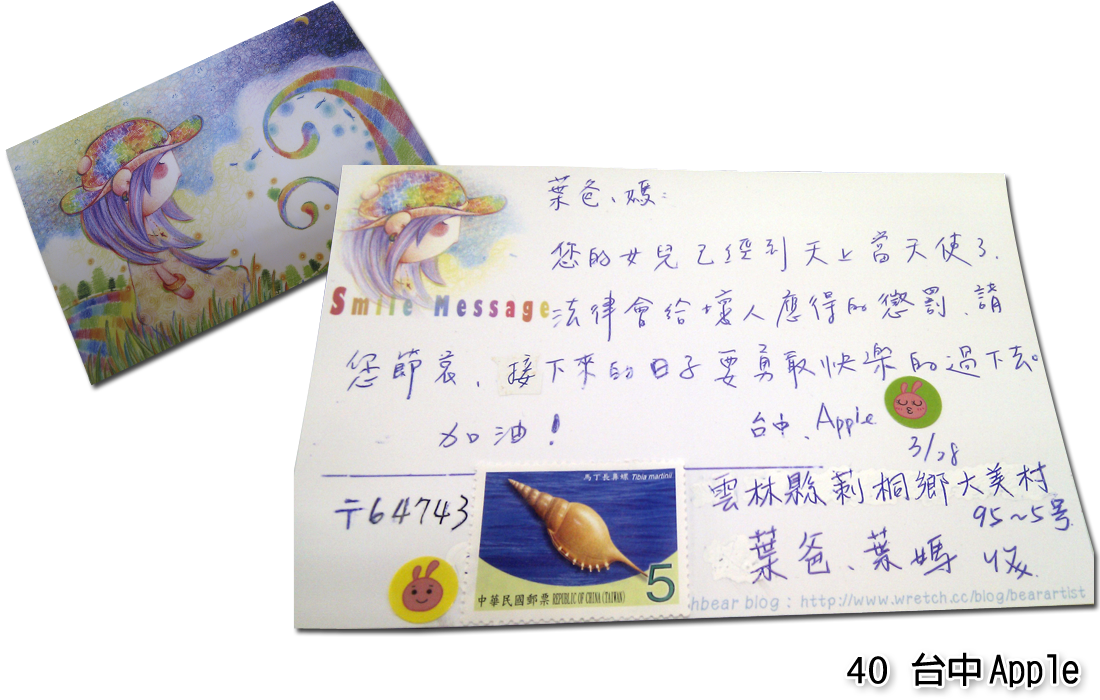 葉爸、媽:
您的女兒已經到天上當天使了.
Smile Message
法律會給壞人應得的懲罰、請
您節哀、接下來的日子要勇敢快樂的過下去。
加油!
台中、Apple
3/28
〒64743
馬丁長鼻螺 Tibia martinii
5
中華民國郵票 REPUBLIC OF CHINA (TAIWAN)
雲林縣莿桐鄉大美村
95~5号
葉爸、葉媽 收.
hbear blog : http://www.wretch.cc/blog/bearartist
40 台中Apple